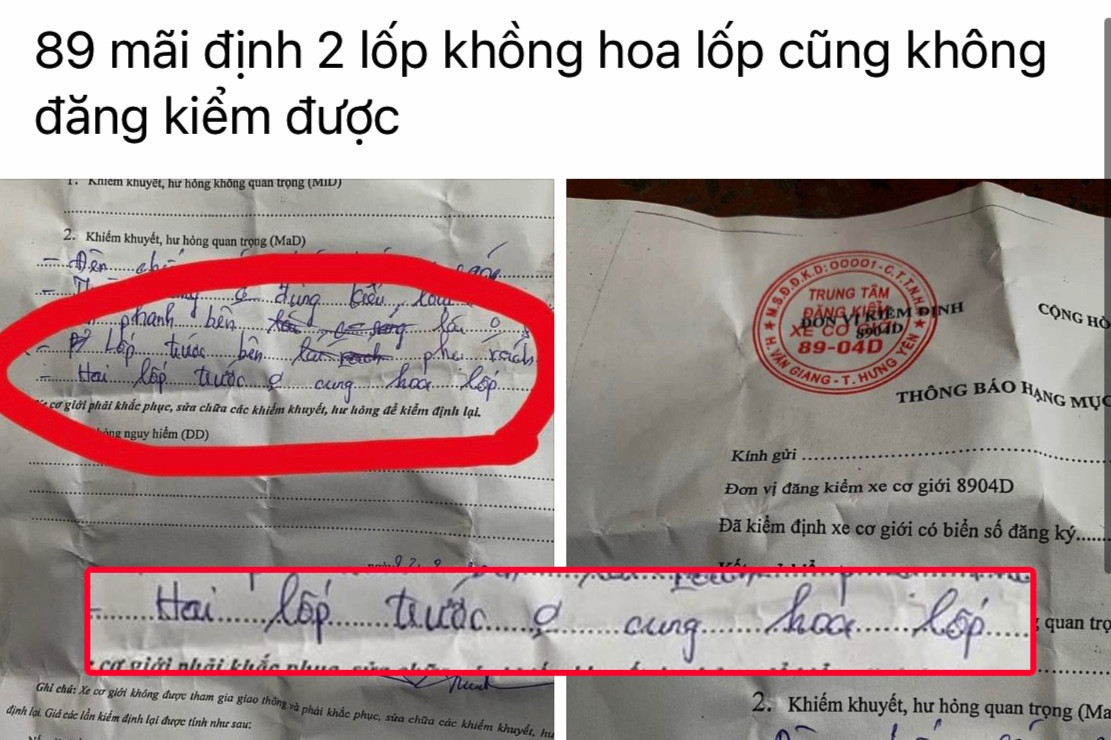 89 mãi định 2 lốp khồng hoa lốp cũng không
đăng kiểm được
1. Khiếm khuyết, hư hỏng không quan trọng (MiD)
2. Khiếm khuyết, hư hỏng quan trọng (MaD)
- Đèn
đ đúng kiểu
phanh bên
- Lốp trước bên lái phụ rách
- Hai lốp trước đ cung hoa lốp
cơ giới phải khắc phục, sửa chữa các khiếm khuyết, hư hỏng để kiểm định lại.
hỏng nguy hiểm (DD)
- Hai lốp trước đ cung hoa lốp
Ghi chú: Xe cơ giới không được tham gia giao thông và phải khắc phục, sửa chữa các khiếm khuyết, hư
định lại. Giá các lần kiểm định lại được tính như sau:
M.S.Đ.Đ.K.D:00001-C.T.T.N.H.H
TRUNG TÂM
ĐĂNG KIỂM
XE CƠ GIỚI
89-04D
H. VĂN GIANG - T. HƯNG YÊN
ĐƠN VỊ KIỂM ĐỊNH
8904D
CỘNG HÒ
THÔNG BÁO HẠNG MỤC
Kính gửi
Đơn vị đăng kiểm xe cơ giới 8904D
Đã kiểm định xe cơ giới có biển số đăng ký
quan trọ
2. Khiếm khuyết, hư hỏng quan trọng (Ma